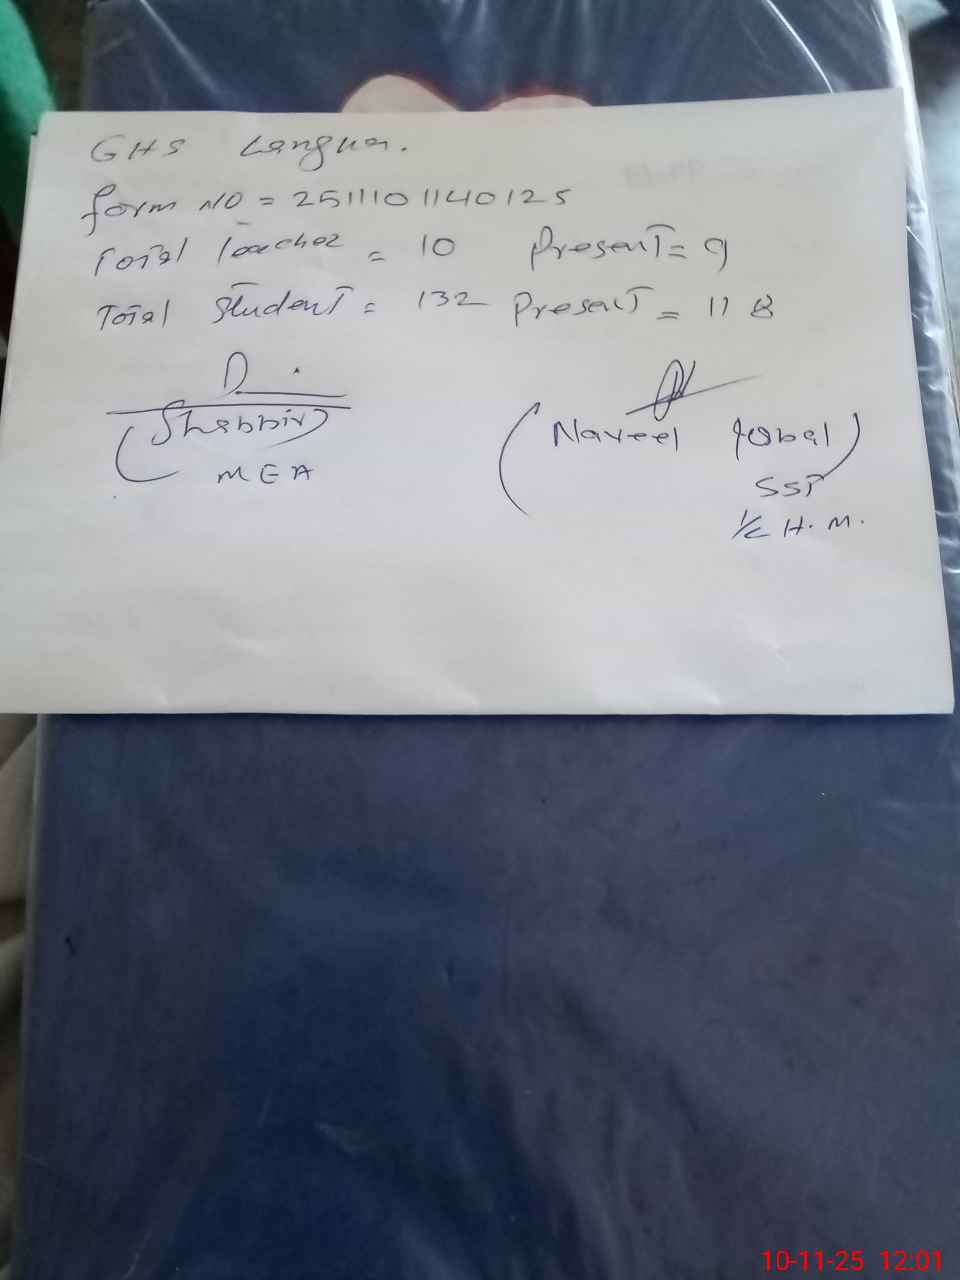 GHS Langha.
form NO = 2511101140125
Total Teacher = 10 Present = 9
Total Student = 132 Present = 118
(Shabbir)
MEA
(Naveel Iqbal)
SST
I/C H. M.
10-11-25 12:01